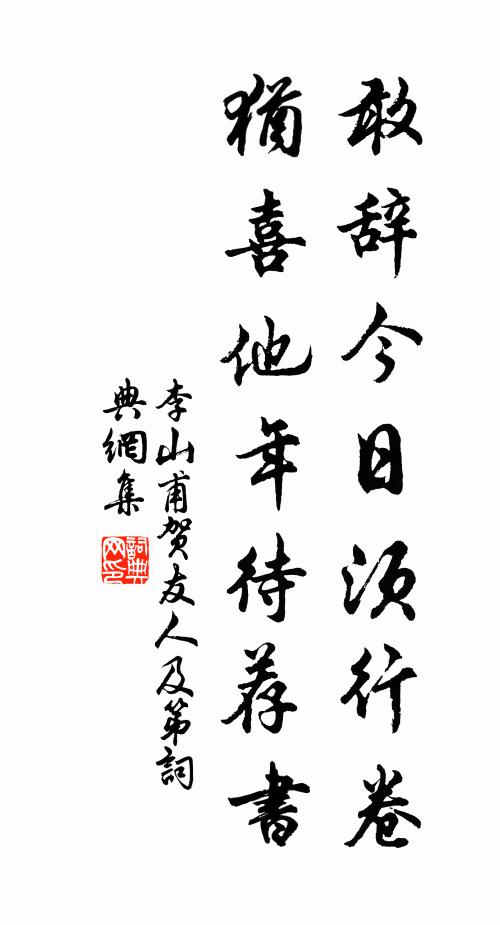 敢辞今日须行卷
犹喜他年待荐書
李山甫贺友人及第詞
典網集
詞典网印